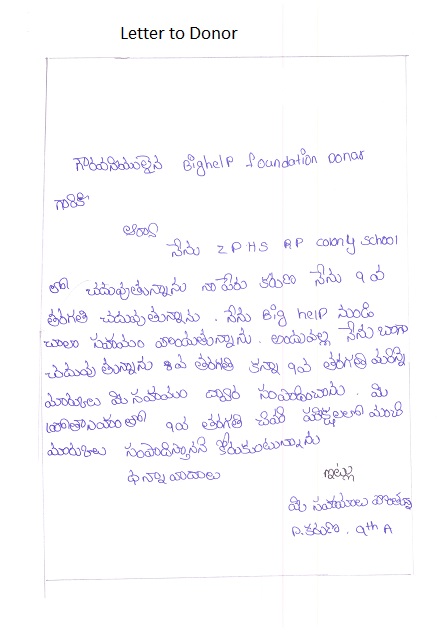 Letter to Donor
గౌరవనీయులైన Bighelp foundation Donar
గారికి
నేను ZPHS RP colony school
లో చదువుతున్నాను నా పేరు కరుణ నేను 9 వ
తరగతి చదువుతున్నాను. నేను Big help నుండి
చాలా సహాయం పొందుతున్నాను. అందువల్ల నేను బాగా
చదువుతున్నాను 8వ తరగతి కన్నా 9వ తరగతి
మార్కులు మీ సహాయం ద్వారా సంపాదించాను. మీ
9వ తరగతి చివరి పరీక్షలలో మంచి
మార్కులు సంపాదిస్తానని కోరుకుంటున్నాను
ధన్యావాదాలు
ఇట్లు
మీ సహాయం
P. కరుణ. 9th A